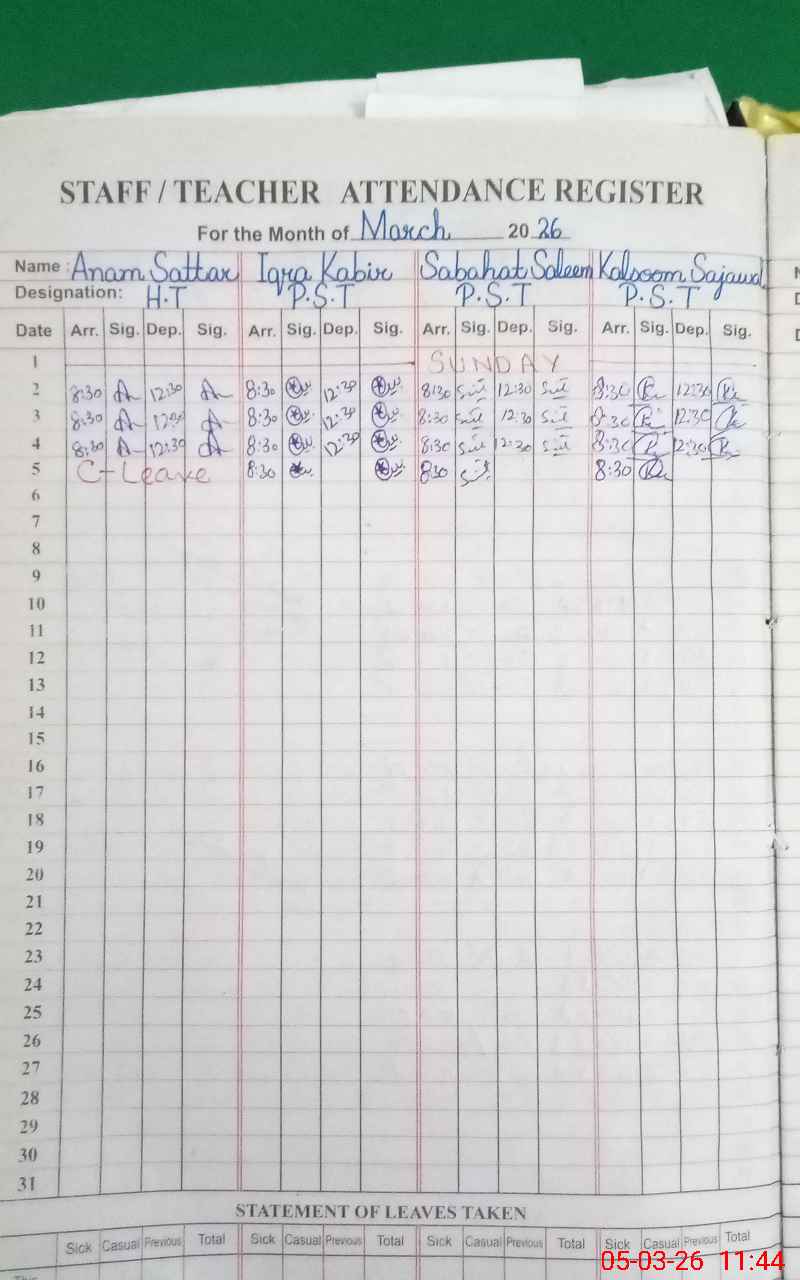 STAFF / TEACHER ATTENDANCE REGISTER
For the Month of March 2026
Name : Anam Sattar Iqra Kabir Sabahat Saleem Kalsoom Sajawal
Designation: H.T P.S.T P.S.T P.S.T
Date Arr. Sig. Dep. Sig. Arr. Sig. Dep. Sig. Arr. Sig. Dep. Sig. Arr. Sig. Dep. Sig.
1 SUNDAY
2 8:30 12:30 8:30 12:30 8:30 12:30 8:30 12:30
3 8:30 12:30 8:30 12:30 8:30 12:30 8:30 12:30
4 8:30 12:30 8:30 12:30 8:30 12:30 8:30 12:30
5 C-Leave 8:30 8:30 8:30
6
7
8
9
10
11
12
13
14
15
16
17
18
19
20
21
22
23
24
25
26
27
28
29
30
31
STATEMENT OF LEAVES TAKEN
Sick Casual Previous Total Sick Casual Previous Total Sick Casual Previous Total Sick Casual Previous Total
This
05-03-26 11:44